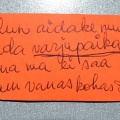 lun aidake mu
da varjupaika
ma ma ei saa
um vanas kohas